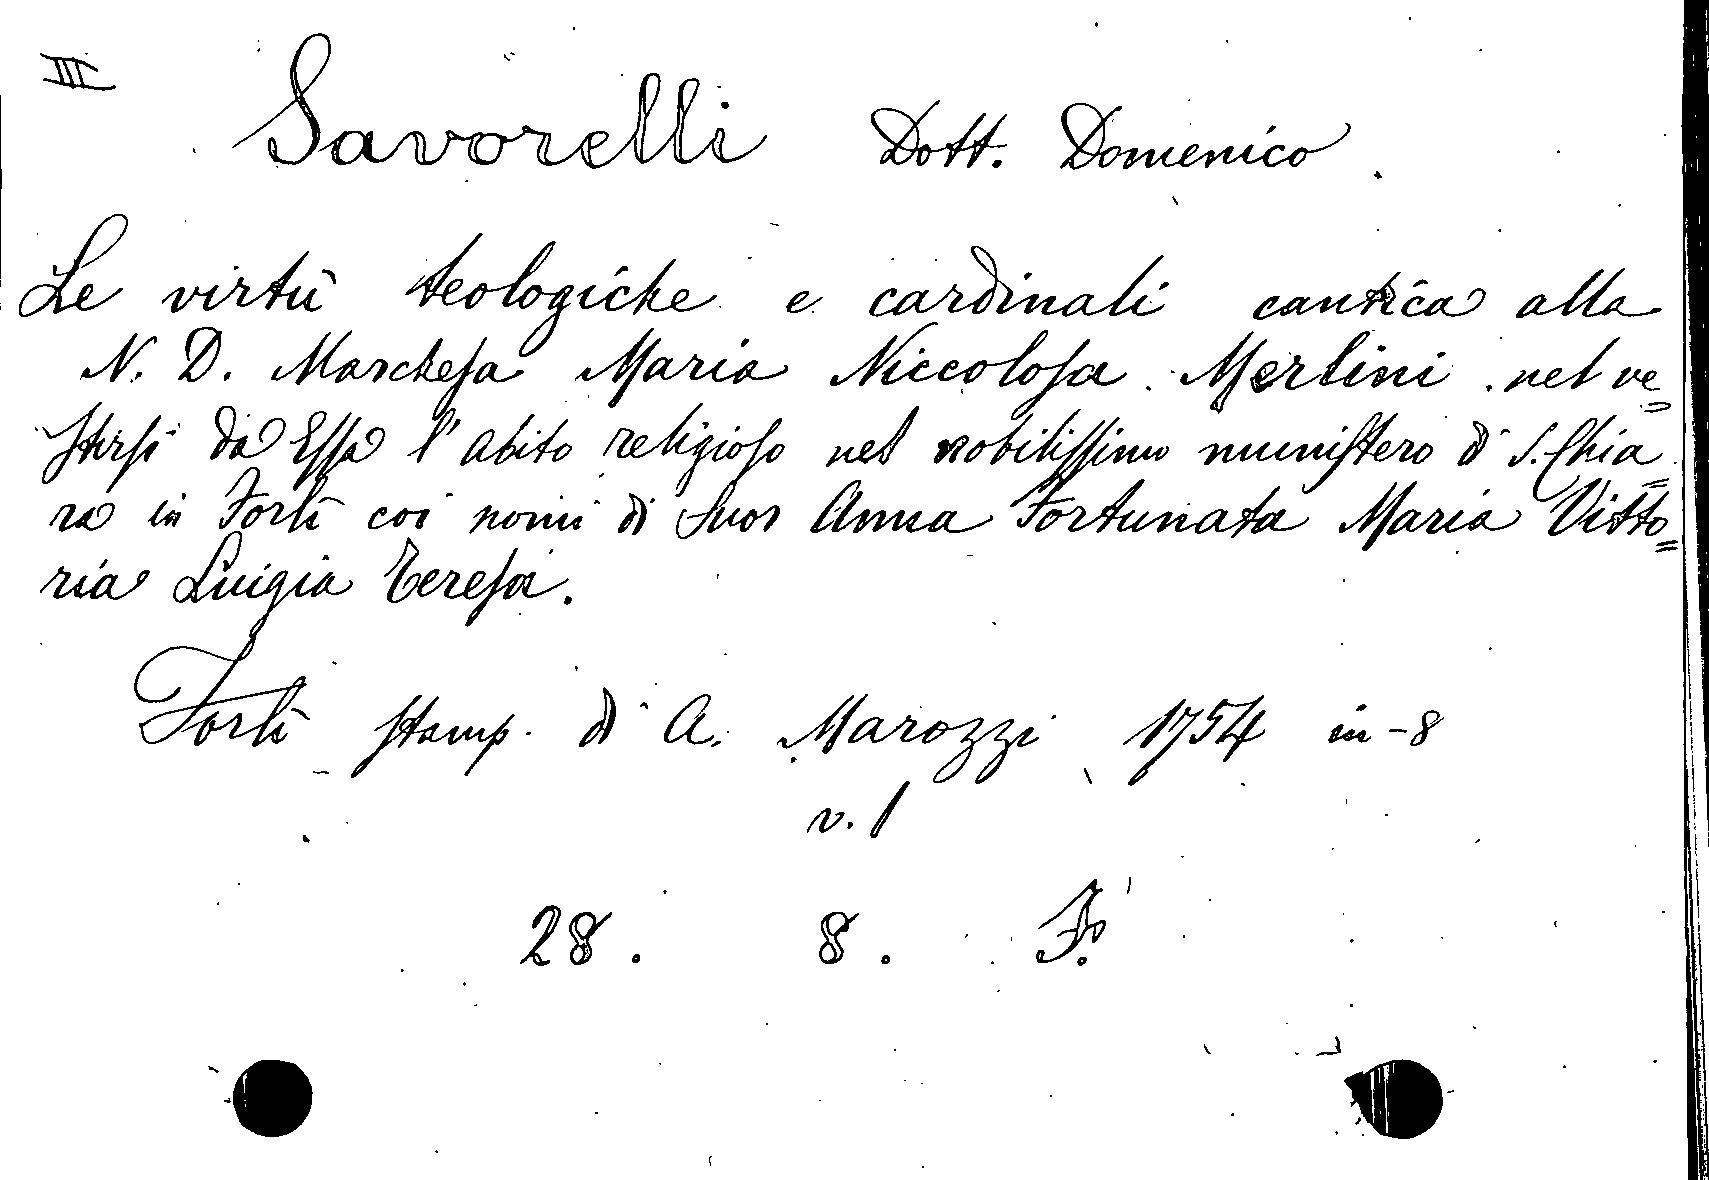 III
Savorelli Dott. Domenico
Le virtù teologiche e cardinali cantica alla
N. D. Marcheſa Maria Niccoloſa Merlini nel ve=
ſtirſi da Eſſa l'abito religioſo nel nobiliſſimo muniſtero di S. Chia=
ra in Forlì coi nomi di Suor Anna Fortunata Maria Vitto=
ria Luigia Tereſa.
Forlì ſtamp. di A. Marozzi 1754 in-8
v. 1
28. 8. F.